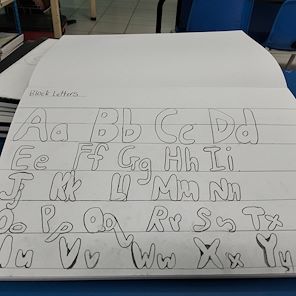 Block Letters
Aa Bb Cc Dd
Ee Ff Gg Hh Ii
Jj Kk Ll Mm Nn
Oo Pp Qq Rr Ss Tt
Uu Vv Ww Xx Yy